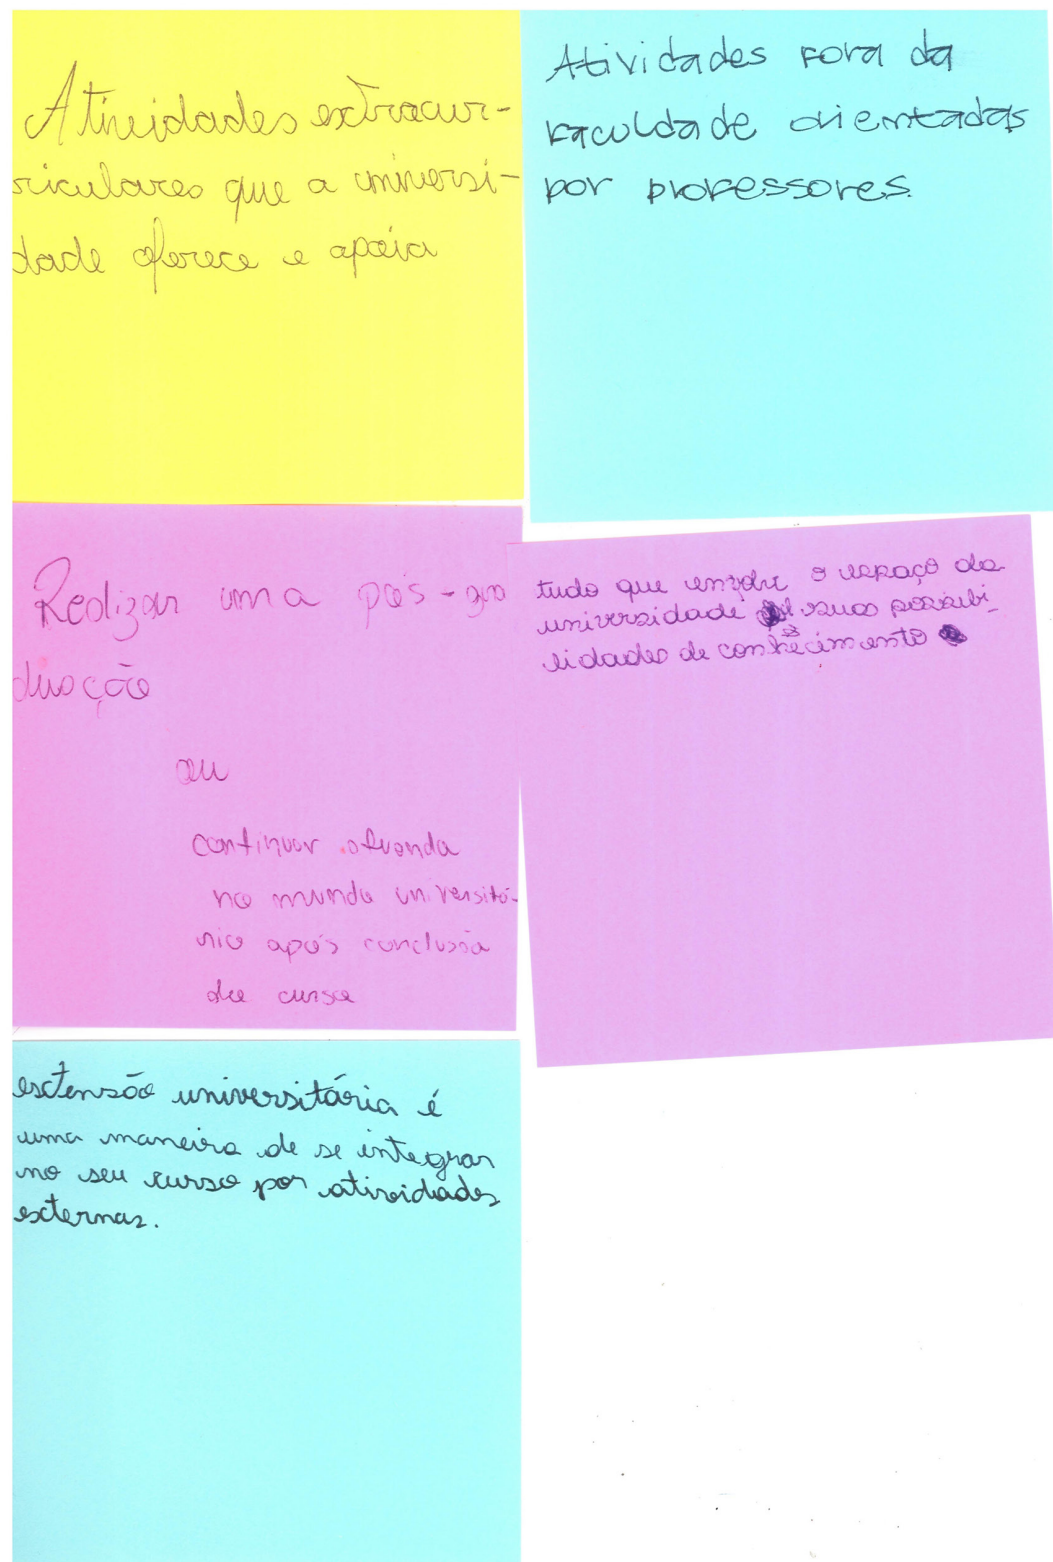 Atividades extracur-
riculares que a universi-
dade oferece e apoia
Atividades fora da
faculdade orientadas
por professores.
Realizar uma pós-gra
duação
ou
continuar atuando
no mundo universitá-
rio após conclusão
do curso
tudo que envolve o espaço da
universidade e suas possibi-
lidades de conhecimento
extensão universitária é
uma maneira de se integrar
no seu curso por atividades
externas.